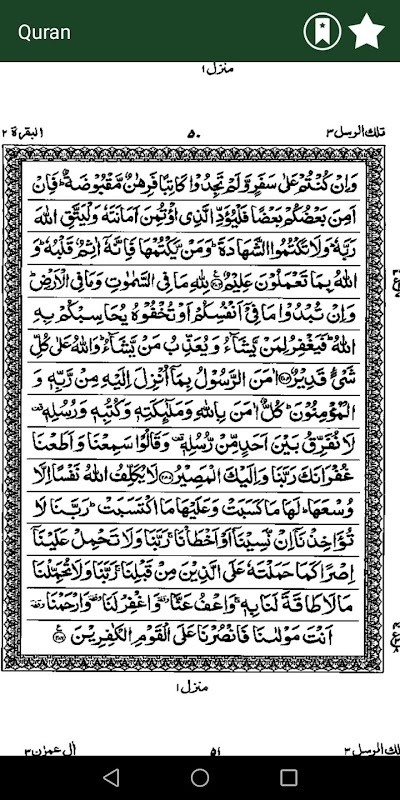 Quran
منزل ١
تلك الرسل ٣ ٥٠ البقرة ٢
وَاِنْ كُنْتُمْ عَلٰى سَفَرٍ وَّلَمْ تَجِدُوْا كَاتِبًا فَرِهٰنٌ مَّقْبُوْضَةٌ ؕ فَاِنْ
اَمِنَ بَعْضُكُمْ بَعْضًا فَلْيُؤَدِّ الَّذِى اؤْتُمِنَ اَمَانَتَهٗ وَلْيَتَّقِ اللّٰهَ
رَبَّهٗ ؕ وَلَا تَكْتُمُوا الشَّهَادَةَ ؕ وَمَنْ يَّكْتُمْهَا فَاِنَّهٗۤ اٰثِمٌ قَلْبُهٗ ؕ وَ
اللّٰهُ بِمَا تَعْمَلُوْنَ عَلِيْمٌ ﴿٢٨٣﴾ لِلّٰهِ مَا فِى السَّمٰوٰتِ وَمَا فِى الْاَرْضِ ؕ
وَاِنْ تُبْدُوْا مَا فِىْۤ اَنْفُسِكُمْ اَوْ تُخْفُوْهُ يُحَاسِبْكُمْ بِهِ
اللّٰهُ ؕ فَيَغْفِرُ لِمَنْ يَّشَآءُ وَيُعَذِّبُ مَنْ يَّشَآءُ ؕ وَاللّٰهُ عَلٰى كُلِّ
شَىْءٍ قَدِيْرٌ ﴿٢٨٤﴾ اٰمَنَ الرَّسُوْلُ بِمَاۤ اُنْزِلَ اِلَيْهِ مِنْ رَّبِّهٖ وَ
الْمُؤْمِنُوْنَ ؕ كُلٌّ اٰمَنَ بِاللّٰهِ وَمَلٰٓئِكَتِهٖ وَكُتُبِهٖ وَرُسُلِهٖ
لَا نُفَرِّقُ بَيْنَ اَحَدٍ مِّنْ رُّسُلِهٖ وَقَالُوْا سَمِعْنَا وَاَطَعْنَا
غُفْرَانَكَ رَبَّنَا وَاِلَيْكَ الْمَصِيْرُ ﴿٢٨٥﴾ لَا يُكَلِّفُ اللّٰهُ نَفْسًا اِلَّا
وُسْعَهَا ؕ لَهَا مَا كَسَبَتْ وَعَلَيْهَا مَا اكْتَسَبَتْ ؕ رَبَّنَا لَا
تُؤَاخِذْنَاۤ اِنْ نَّسِيْنَاۤ اَوْ اَخْطَاْنَا ۚ رَبَّنَا وَلَا تَحْمِلْ عَلَيْنَاۤ
اِصْرًا كَمَا حَمَلْتَهٗ عَلَى الَّذِيْنَ مِنْ قَبْلِنَا ۚ رَبَّنَا وَلَا تُحَمِّلْنَا
مَا لَا طَاقَةَ لَنَا بِهٖ ۚ وَاعْفُ عَنَّا وَاغْفِرْ لَنَا وَارْحَمْنَا
اَنْتَ مَوْلٰىنَا فَانْصُرْنَا عَلَى الْقَوْمِ الْكٰفِرِيْنَ ﴿٢٨٦﴾
منزل ١
تلك الرسل ٣ ٥١ اٰل عمرٰن ٣